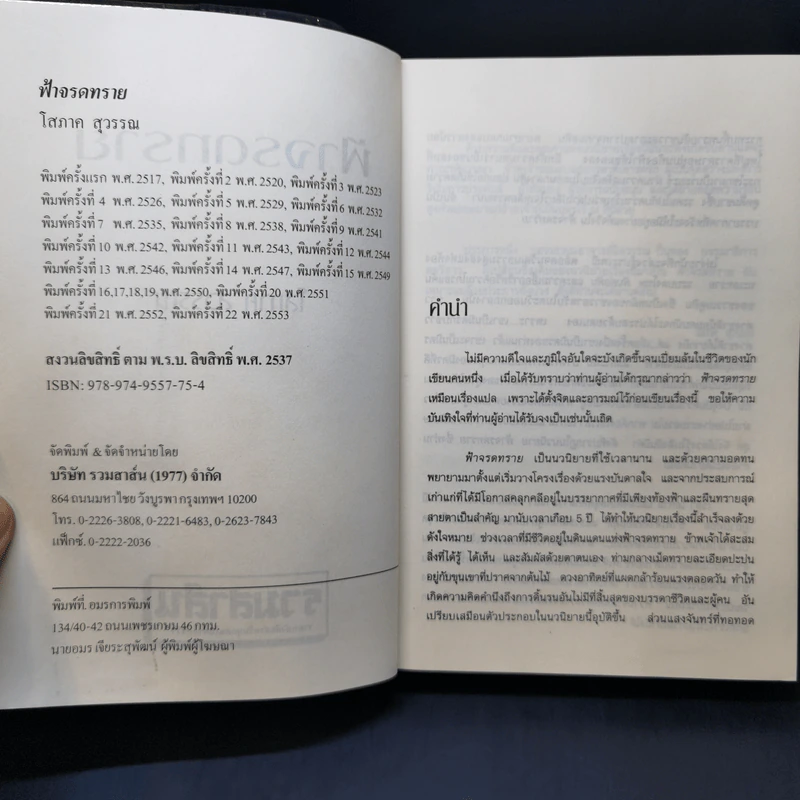 ฟ้าจรดทราย
โสภาค สุวรรณ
พิมพ์ครั้งแรก พ.ศ. 2517, พิมพ์ครั้งที่ 2 พ.ศ. 2520, พิมพ์ครั้งที่ 3 พ.ศ. 2523
พิมพ์ครั้งที่ 4 พ.ศ. 2526, พิมพ์ครั้งที่ 5 พ.ศ. 2529, พิมพ์ครั้งที่ 6 พ.ศ. 2532
พิมพ์ครั้งที่ 7 พ.ศ. 2535, พิมพ์ครั้งที่ 8 พ.ศ. 2538, พิมพ์ครั้งที่ 9 พ.ศ. 2541
พิมพ์ครั้งที่ 10 พ.ศ. 2542, พิมพ์ครั้งที่ 11 พ.ศ. 2543, พิมพ์ครั้งที่ 12 พ.ศ. 2544
พิมพ์ครั้งที่ 13 พ.ศ. 2546, พิมพ์ครั้งที่ 14 พ.ศ. 2547, พิมพ์ครั้งที่ 15 พ.ศ. 2549
พิมพ์ครั้งที่ 16,17,18,19, พ.ศ. 2550, พิมพ์ครั้งที่ 20 พ.ศ. 2551
พิมพ์ครั้งที่ 21 พ.ศ. 2552, พิมพ์ครั้งที่ 22 พ.ศ. 2553
สงวนลิขสิทธิ์ ตาม พ.ร.บ. ลิขสิทธิ์ พ.ศ. 2537
ISBN: 978-974-9557-75-4
จัดพิมพ์ & จัดจำหน่ายโดย
บริษัท รวมสาส์น (1977) จำกัด
864 ถนนมหาไชย วังบูรพา กรุงเทพฯ 10200
โทร. 0-2226-3808, 0-2221-6483, 0-2623-7843
แฟ็กซ์. 0-2222-2036
พิมพ์ที่. อมรการพิมพ์
134/40-42 ถนนเพชรเกษม 46 กทม.
นายอมร เจียระสุพัฒน์ ผู้พิมพ์ผู้โฆษณา
คำนำ
ไม่มีความดีใจและภูมิใจอันใดจะบังเกิดขึ้นจนเปี่ยมล้นในชีวิตของนัก
เขียนคนหนึ่ง เมื่อได้รับทราบว่าท่านผู้อ่านได้กรุณากล่าวว่า ฟ้าจรดทราย
เหมือนเรื่องแปล เพราะได้ตั้งจิตและอารมณ์ไว้ก่อนเขียนเรื่องนี้ ขอให้ความ
บันเทิงใจที่ท่านผู้อ่านได้รับจงเป็นเช่นนั้นเถิด
ฟ้าจรดทราย เป็นนวนิยายที่ใช้เวลานาน และด้วยความอดทน
พยายามมาตั้งแต่เริ่มวางโครงเรื่องด้วยแรงบันดาลใจ และจากประสบการณ์
เก่าแก่ที่ได้มีโอกาสคลุกคลีอยู่ในบรรยากาศที่มีเพียงท้องฟ้าและผืนทรายสุด
สายตาเป็นสำคัญ มานับเวลาเกือบ 5 ปี ได้ทำให้นวนิยายเรื่องนี้สำเร็จลงด้วย
ดังใจหมาย ช่วงเวลาที่มีชีวิตอยู่ในดินแดนแห่งฟ้าจรดทราย ข้าพเจ้าได้สะสม
สิ่งที่ได้รู้ ได้เห็น และสัมผัสด้วยตาตนเอง ท่ามกลางเม็ดทรายละเอียดปะปน
อยู่กับขุนเขาที่ปราศจากต้นไม้ ดวงอาทิตย์ที่แผดกล้าร้อนแรงตลอดวัน ทำให้
เกิดความคิดคำนึงถึงการดิ้นรนอันไม่มีที่สิ้นสุดของบรรดาชีวิตและผู้คน อัน
เปรียบเสมือนตัวประกอบในนวนิยายนี้อุบัติขึ้น ส่วนแสงจันทร์ที่ทอทอด